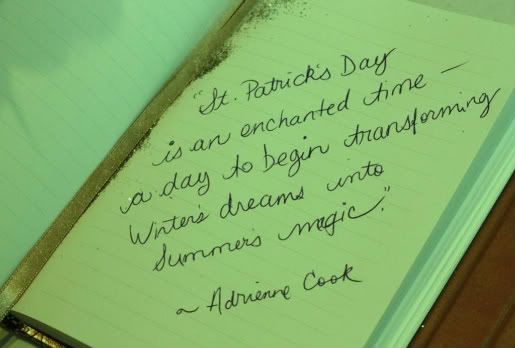 "St. Patrick's Day
is an enchanted time —
a day to begin transforming
Winter's dreams into
Summer's magic."
~ Adrienne Cook